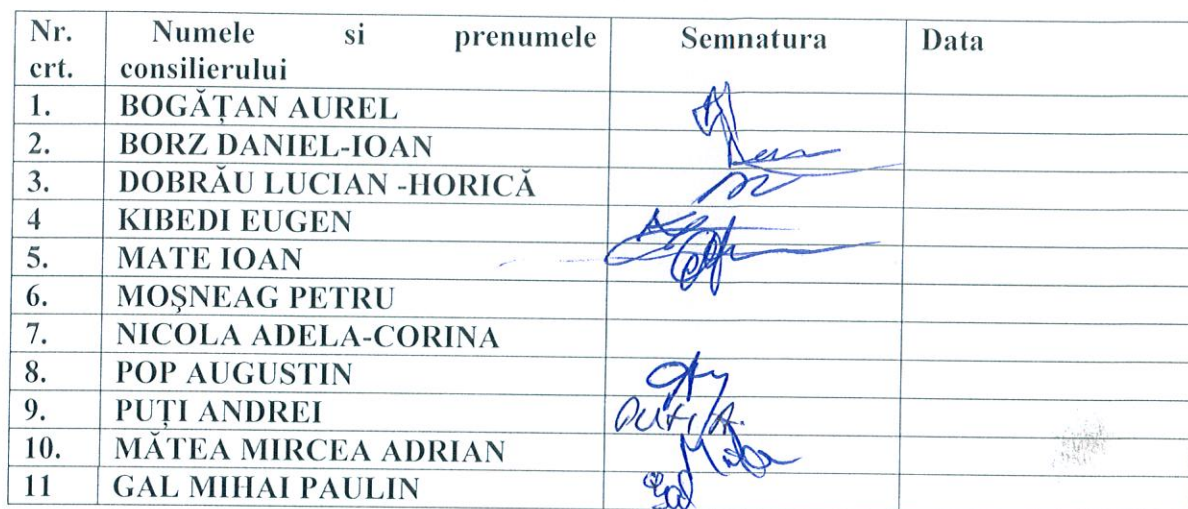 Nr. crt. Numele si prenumele consilierului Semnatura Data
1. BOGĂȚAN AUREL
2. BORZ DANIEL-IOAN
3. DOBRĂU LUCIAN -HORICĂ
4 KIBEDI EUGEN
5. MATE IOAN
6. MOȘNEAG PETRU
7. NICOLA ADELA-CORINA
8. POP AUGUSTIN
9. PUȚI ANDREI PUTI A.
10. MĂTEA MIRCEA ADRIAN
11 GAL MIHAI PAULIN Gal